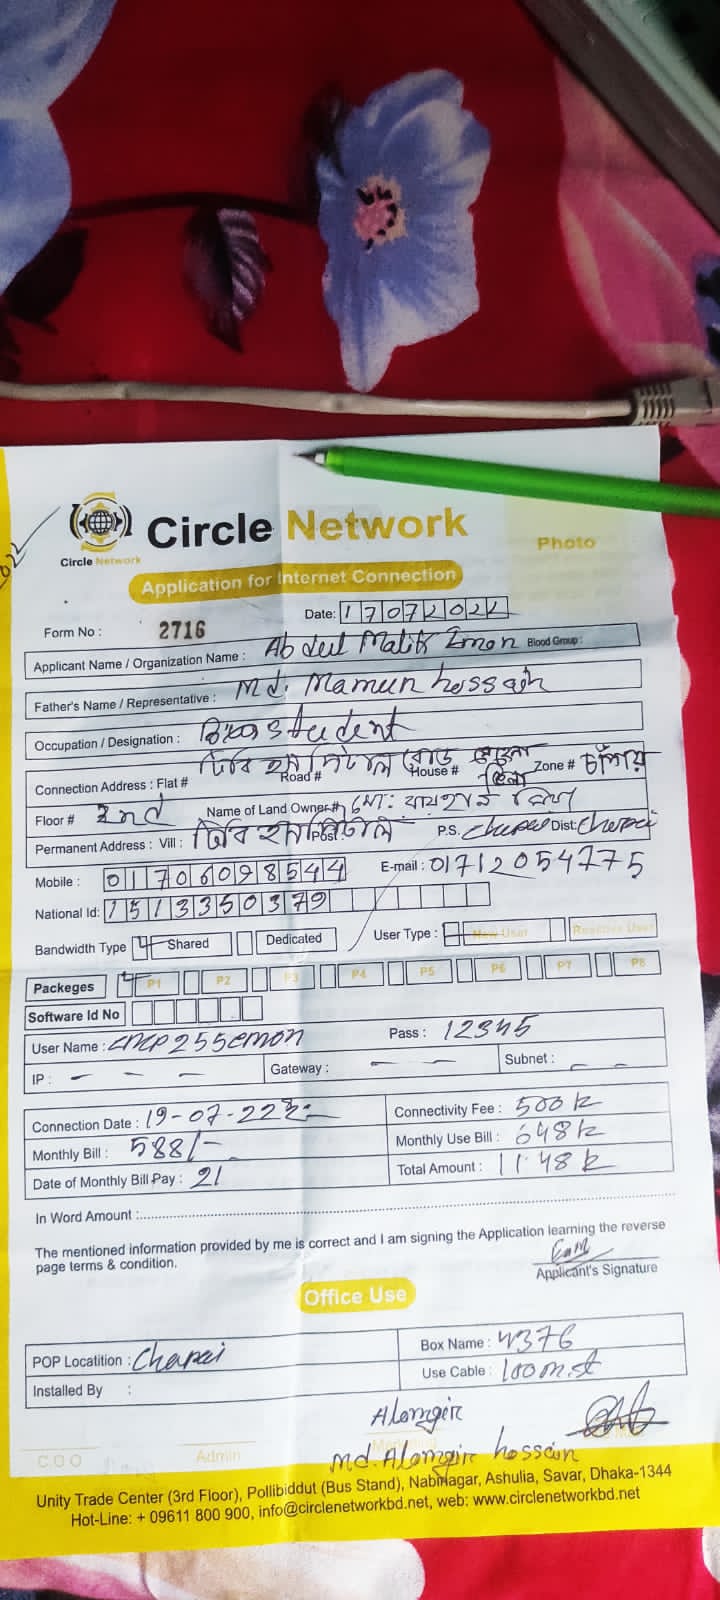 Circle Network
Circle Network
Photo
Application for Internet Connection
Date: 1707202
Form No : 2716
Applicant Name / Organization Name : Abdul Malik Emon Blood Group :
Father's Name / Representative : Md. Mamun hossain
Occupation / Designation : student
Connection Address : Flat # টিবি হসপিটাল রোড Road # House # জেলা Zone # চাঁপাই
Floor # 2nd Name of Land Owner# মো:
Permanent Address : Vill : টিবি হসপিটাল Post : P.S. chapai Dist: Chapai
Mobile : 01706098544 E-mail : 01712054775
National Id: 1513350379
Bandwidth Type Shared Dedicated User Type : New User Reactive User
Packeges P1 P2 P3 P4 P5 P6 P7 P8
Software Id No
User Name : cmp255emon Pass : 12345
IP : - - - Gateway : - - Subnet : - -
Connection Date : 19-07-22 Connectivity Fee : 500
Monthly Bill : 588/- Monthly Use Bill : 648
Date of Monthly Bill Pay : 21 Total Amount : 1148
In Word Amount :
The mentioned information provided by me is correct and I am signing the Application learning the reverse
page terms & condition.
Applicant's Signature
Office Use
POP Locatition : Chapai Box Name : 4376
Installed By : Use Cable : 100
Alomgir
C O O Admin Md. Alomgir hossain
Unity Trade Center (3rd Floor), Pollibiddut (Bus Stand), Nabinagar, Ashulia, Savar, Dhaka-1344
Hot-Line: + 09611 800 900, info@circlenetworkbd.net, web: www.circlenetworkbd.net